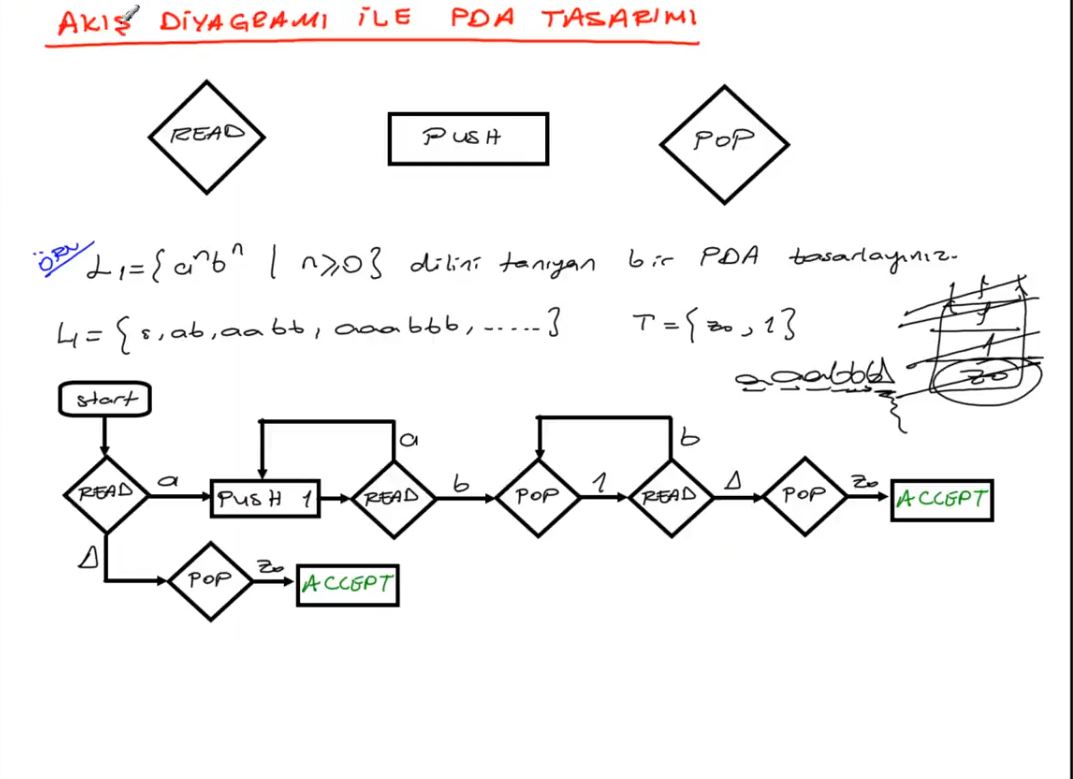 AKIŞ DİYAGRAMI İLE PDA TASARIMI
READ PUSH POP
ÖRN L₁={aⁿbⁿ | n≥0} dilini tanıyan bir PDA tasarlayınız.
L₁={ε, ab, aabb, aaabbb, .....} T={z₀, 1}
1
1
1
aaabbbΔ z₀
start
a b
READ a PUSH 1 READ b POP 1 READ Δ POP z₀ ACCEPT
Δ POP z₀ ACCEPT